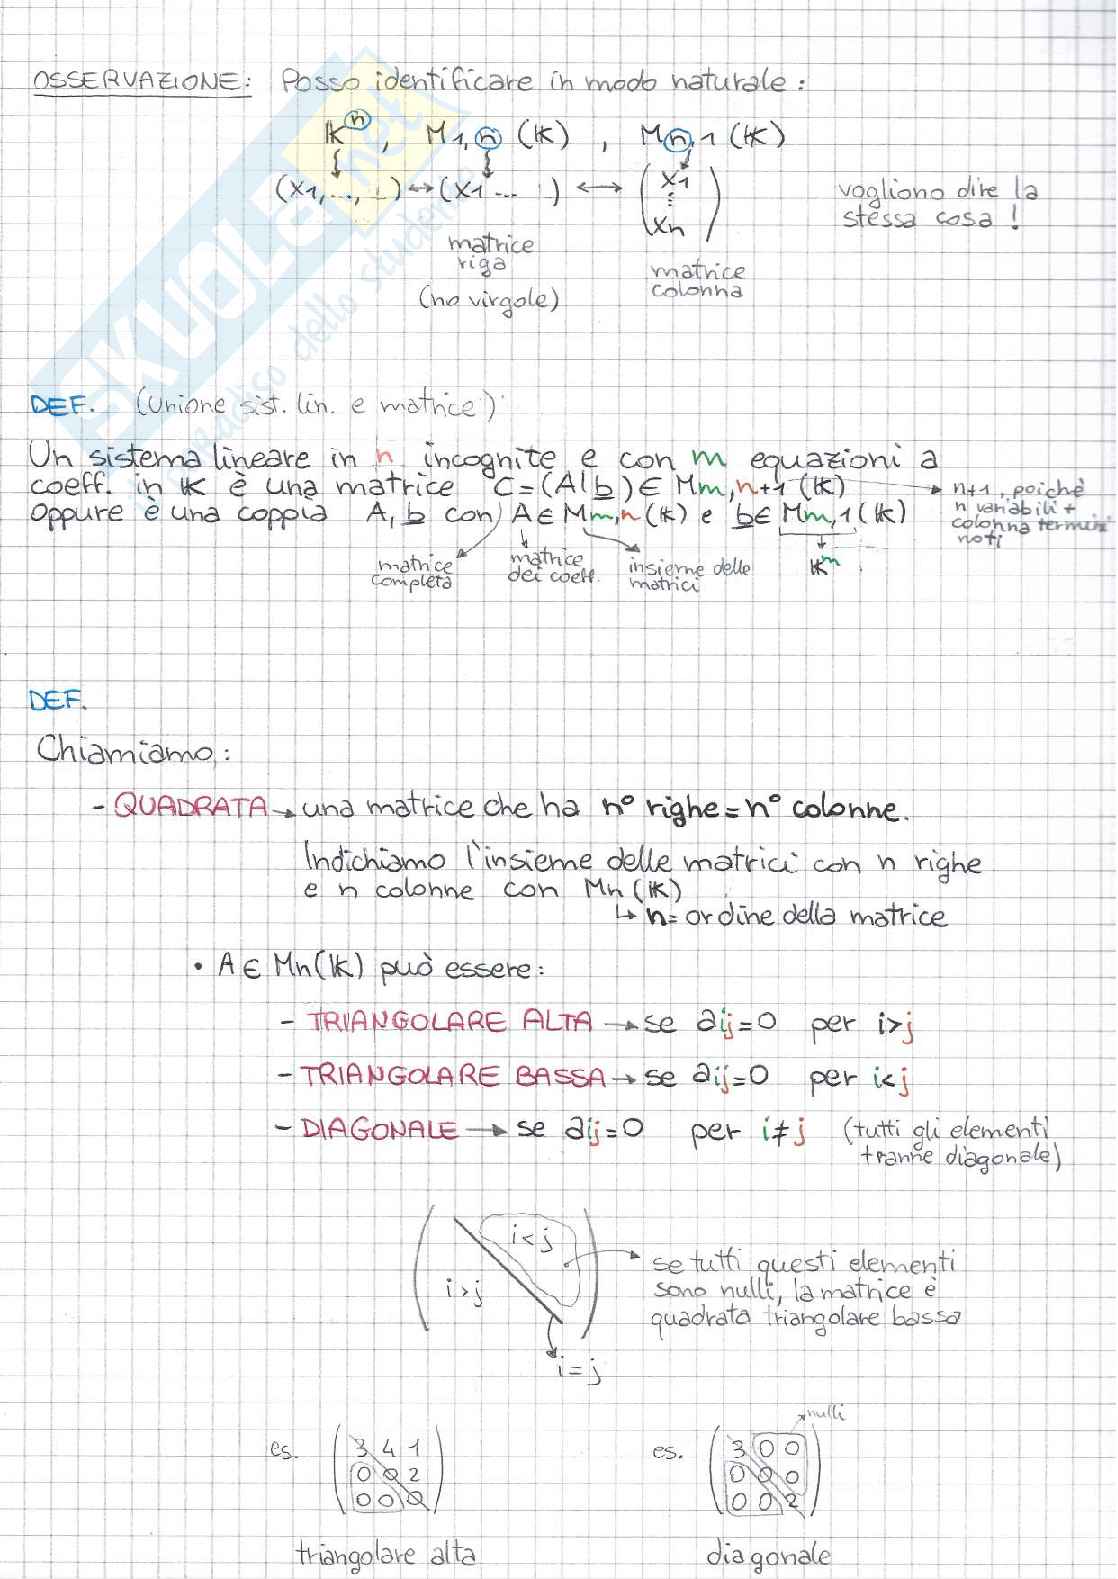 OSSERVAZIONE: Posso identificare in modo naturale:
𝕂ⁿ , M1,n (𝕂) , Mn,1 (𝕂)
(x1,...,⊥) ↔ (x1 ... ) ↔ (x1 ⋮ xn)
vogliono dire la
stessa cosa!
matrice
riga
(no virgole)
matrice
colonna
SKUOLA.net
paradiso dello studente
DEF. (Unione sist. lin. e matrice):
Un sistema lineare in n incognite e con m equazioni a
coeff. in 𝕂 è una matrice C=(A|b) ∈ Mm,n+1 (𝕂)
oppure è una coppia A, b con A ∈ Mm,n (𝕂) e b ∈ Mm,1 (𝕂)
→ n+1, poichè
n variabili +
colonna termini
noti
matrice
completa
matrice
dei coeff.
insieme delle
matrici
𝕂ᵐ
DEF.
Chiamiamo:
- QUADRATA → una matrice che ha n° righe = n° colonne.
Indichiamo l'insieme delle matrici con n righe
e n colonne con Mn (𝕂)
↳ n = ordine della matrice
• A ∈ Mn(𝕂) può essere:
- TRIANGOLARE ALTA → se aij=0 per i>j
- TRIANGOLARE BASSA → se aij=0 per i<j
- DIAGONALE → se aij=0 per i≠j (tutti gli elementi
tranne diagonale)
i<j
i>j
→ se tutti questi elementi
sono nulli, la matrice è
quadrata triangolare bassa
i=j
es.
3 4 1
0 0 2
0 0 0
triangolare alta
es.
→ nulli
3 0 0
0 0 0
0 0 2
diagonale